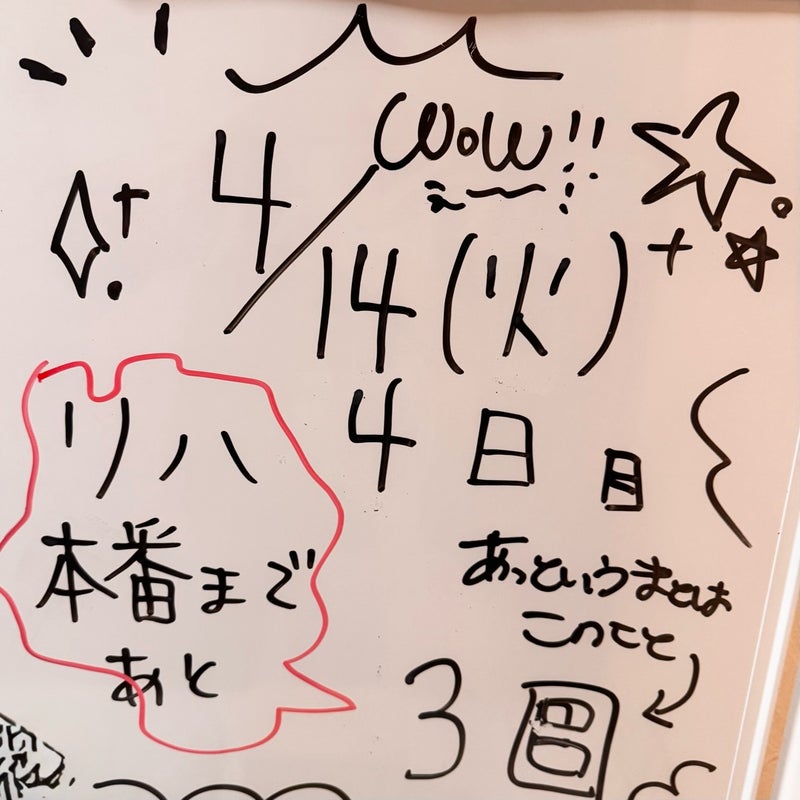 WOW!!
え〜!
4/14(火)
4日目
リハ
本番まで
あと
3日
あっというまとは
このこと